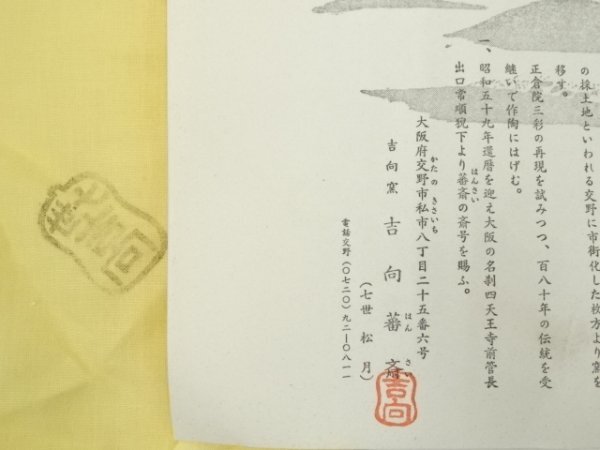 の採土地といわれる交野に市街化した枚方より窯を
移す。
正倉院三彩の再現を試みつつ、百八十年の伝統を受
継いで作陶にはげむ。
一、昭和五十九年還暦を迎え大阪の名刹四天王寺前管長
出口常順猊下より蕃斎の斎号を賜ふ。
はんさい
大阪府交野市私市八丁目二十五番六号
かたの きさいち
吉向窯 吉向蕃斎
はんさい
(七世 松月)
電話交野(〇七二〇)九二ー〇八一一
吉向
七世
吉向